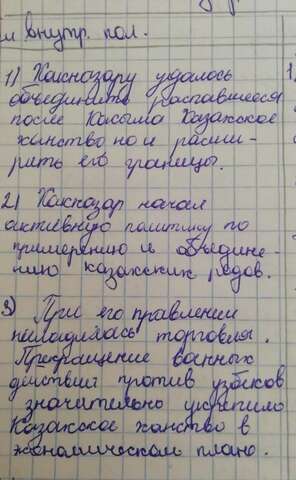 и внутр. пол.
1) Хакназару удалось
объединить распавшееся
после Касыма Казахское
ханство но и расши-
рить его границы.
2) Хакназар начал
активную политику по
примерению и объедине-
нию казахских родов.
3) При его правлении
наладилась торговля.
Прекращение военных
действий против узбеков
значительно укрепило
Казахское ханство в
экономическом плане.
1.